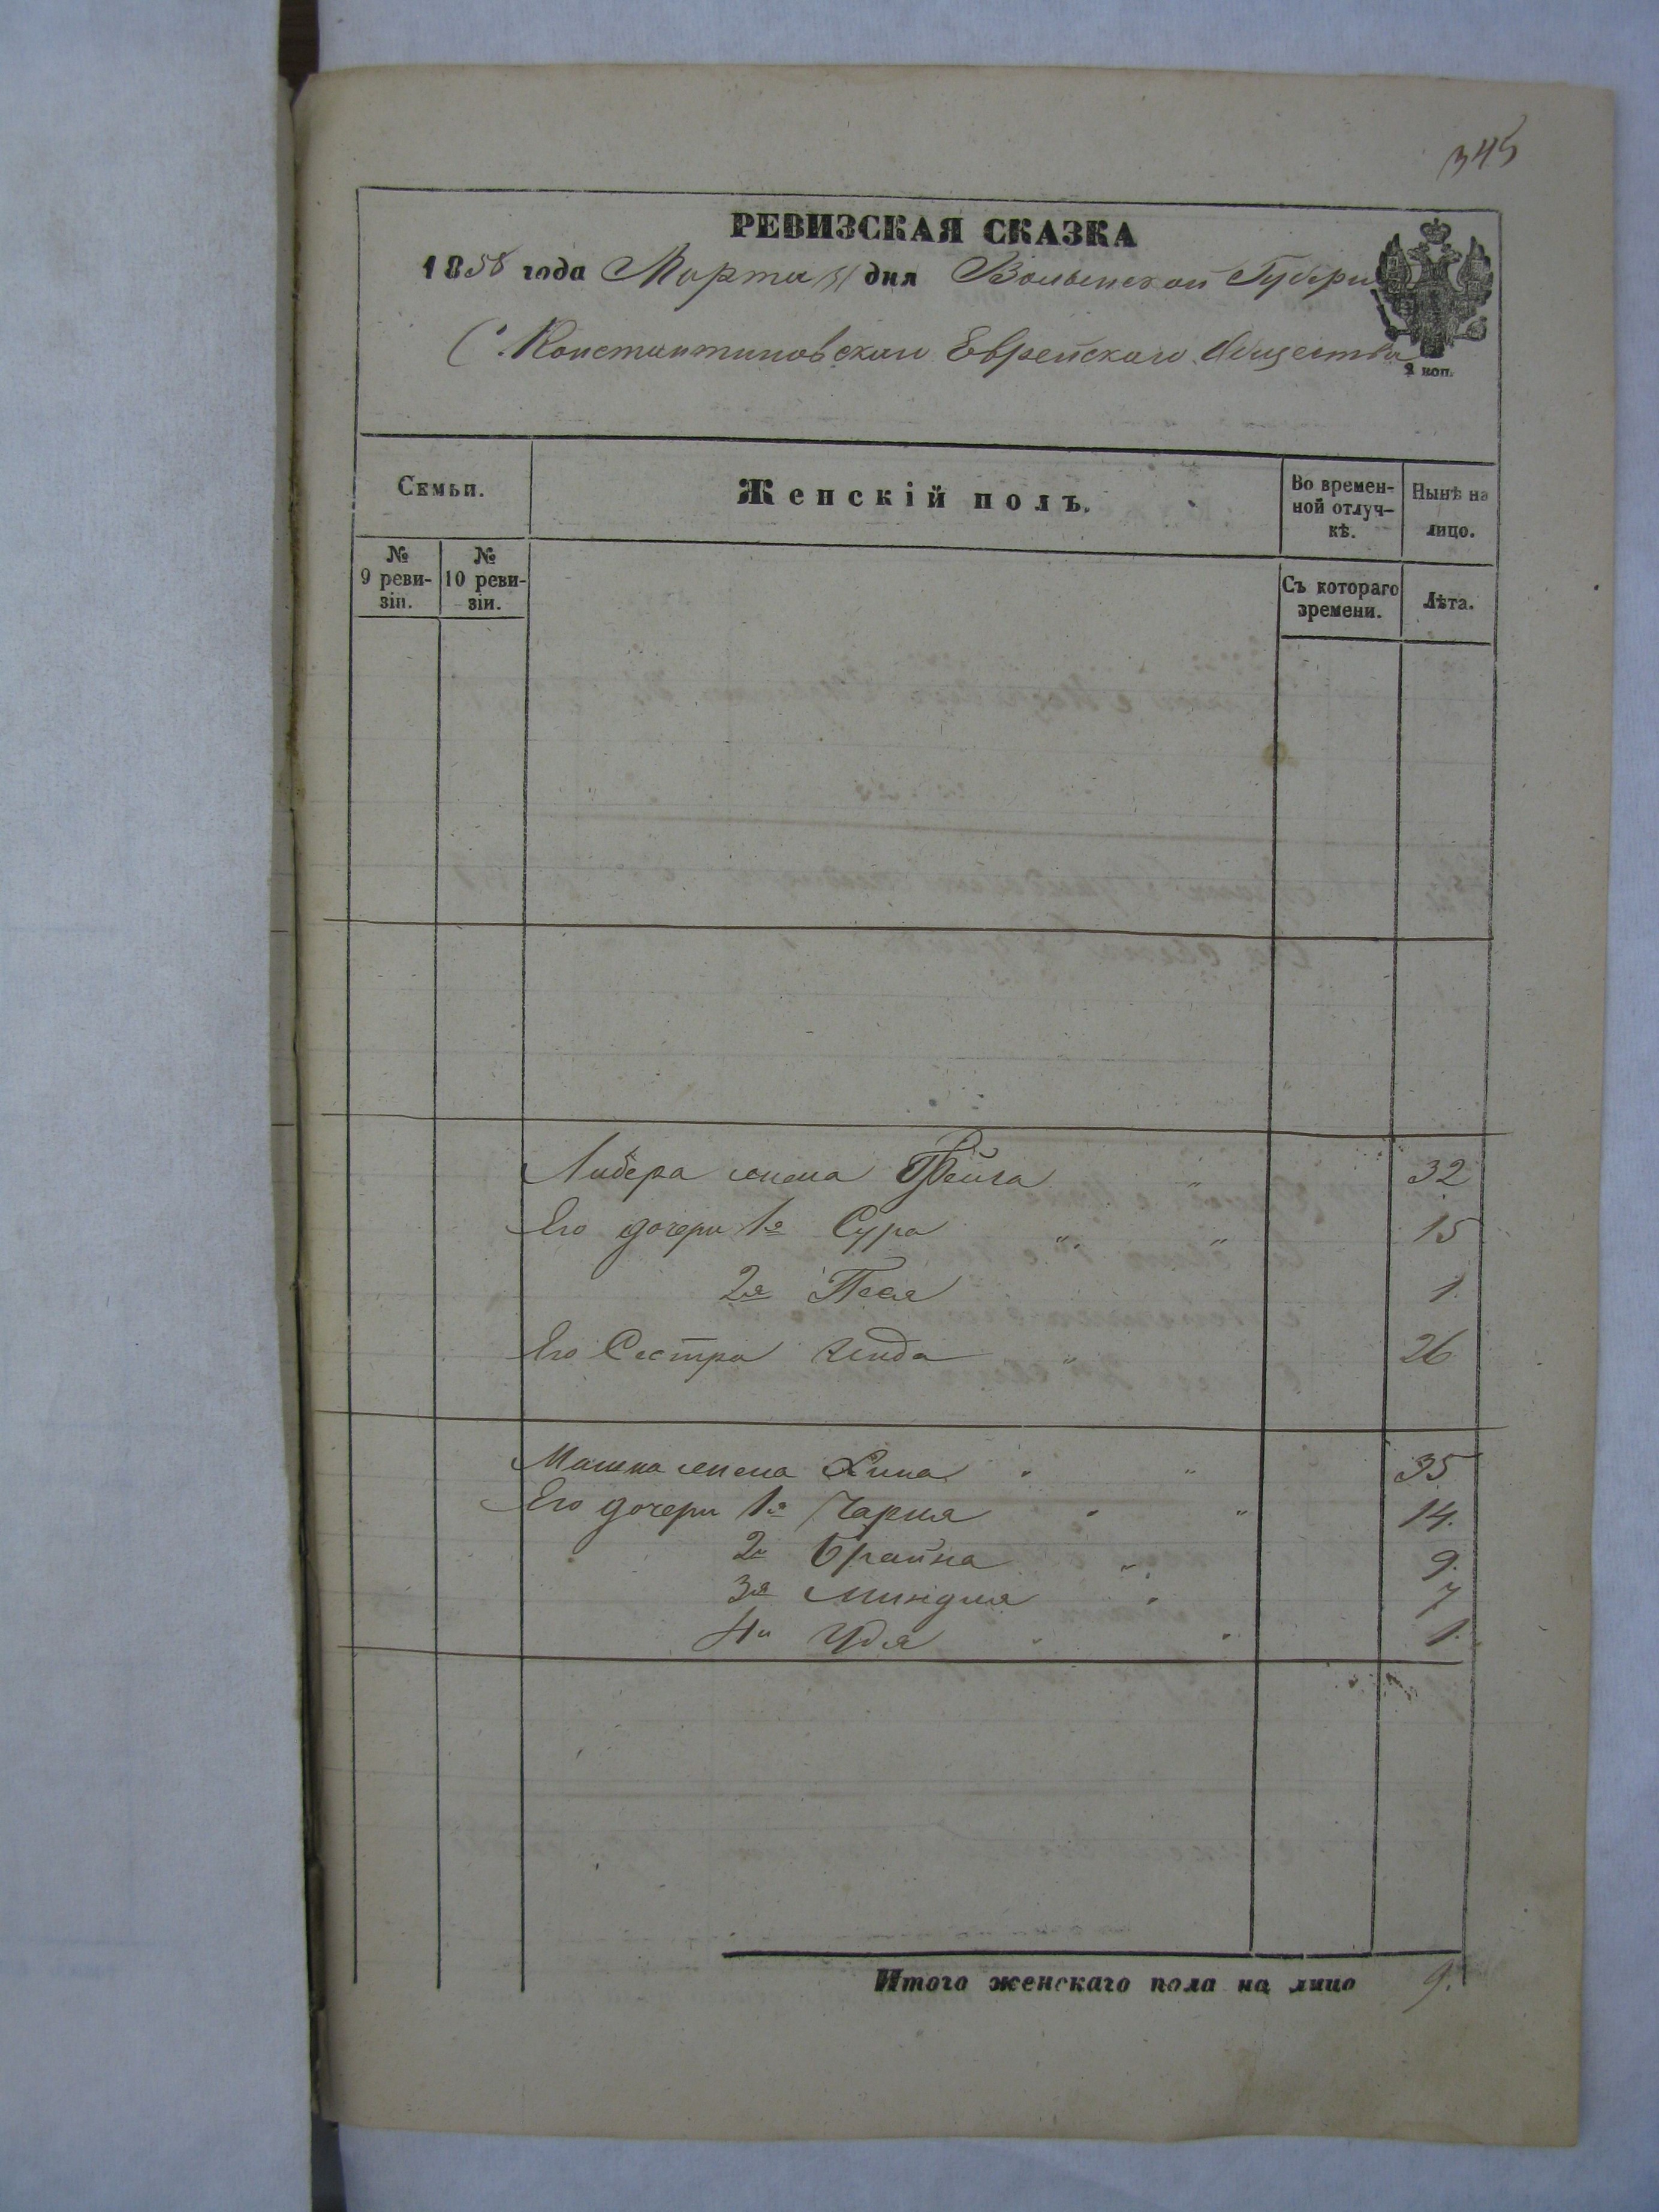 345
РЕВИЗСКАЯ СКАЗКА
1858 года Марта 31 дня Волынской Губерн
С. Константиновскаго Еврейскаго Общества
2 коп.
Семьи.
Женскій полъ.
Во времен-
ной отлуч-
кѣ.
Нынѣ на
лицо.
№
9 реви-
зіи.
№
10 реви-
зіи.
Съ котораго
времени.
Лѣта.
Либера жена Фейга " 32
Его дочери 1я Сура " " 15
2я Песя 1.
Его Сестра Хинда " 26
жена Хина " 35
Его дочери 1я Чарня " " 14.
2я Брайна " 9.
3я Миндля " 7
4я Удя " " 1.
Итого женскаго пола на лицо 9.